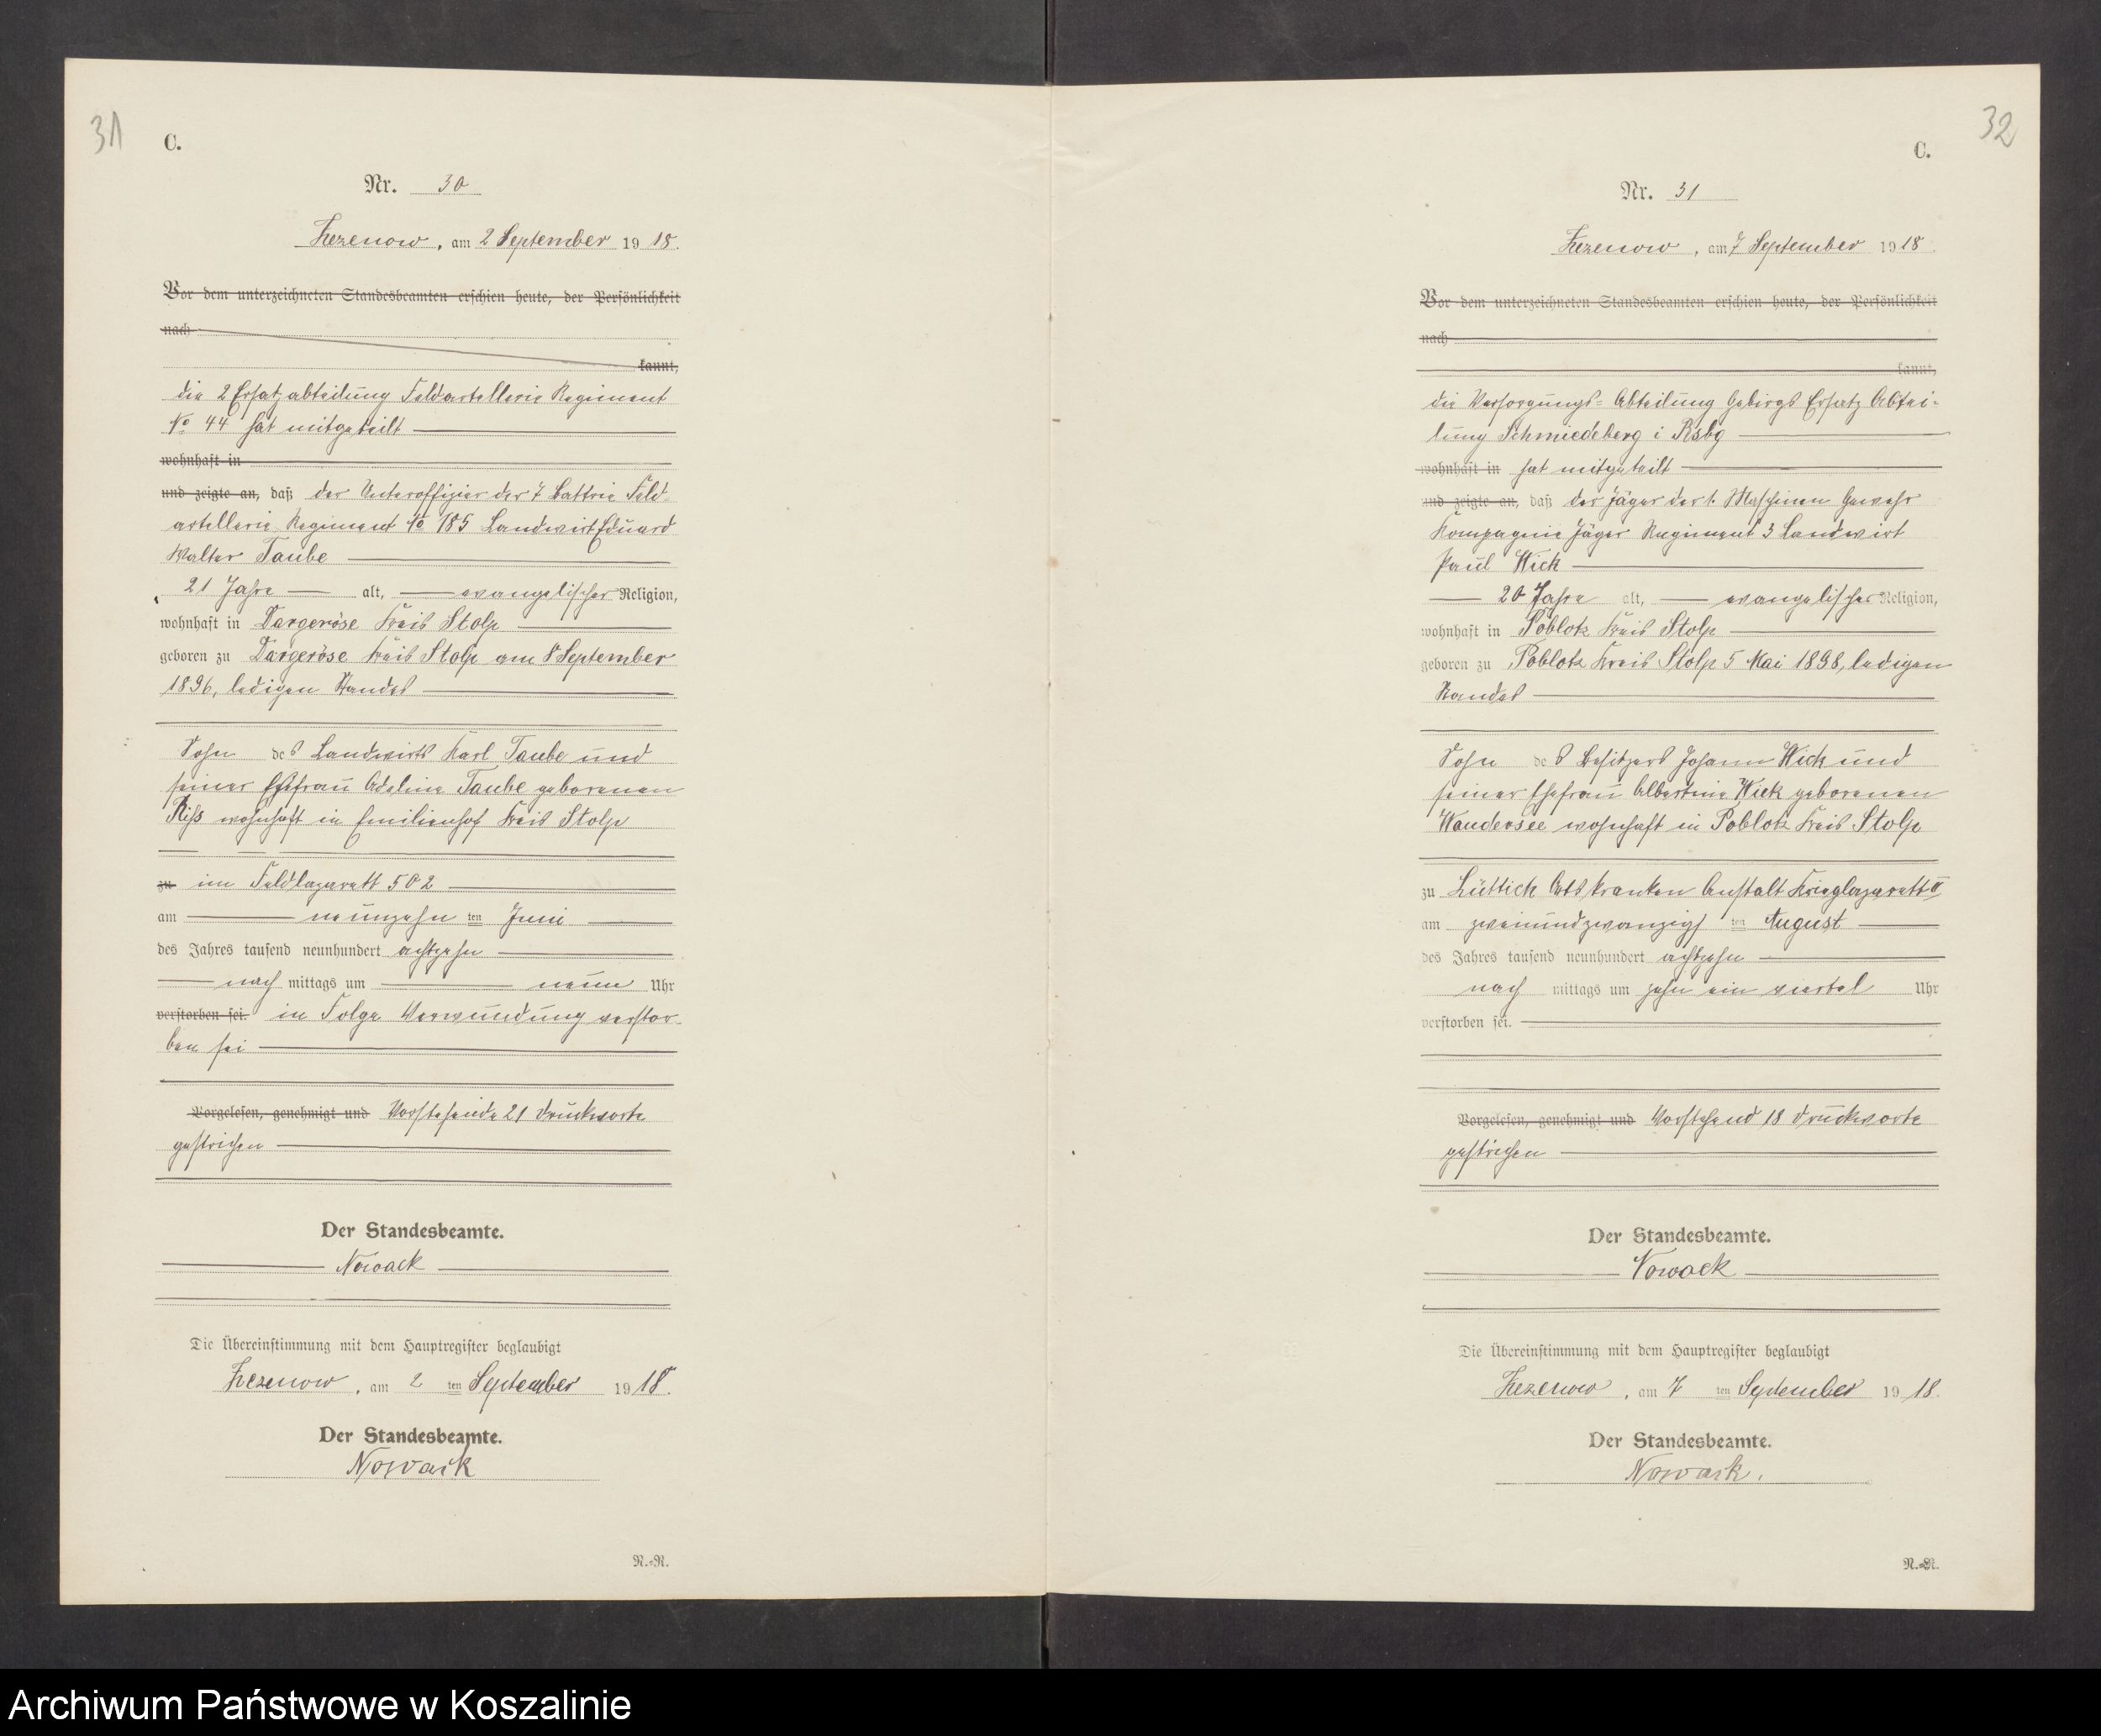 31
C.
Nr. 30
Zezenow, am 2 September 1918.
Vor dem unterzeichneten Standesbeamten erschien heute, der Persönlichkeit
nach
kannt,
die 2 Ersatzabteilung Feldartellerie Regiment
No 44 hat mitgeteilt
wohnhaft in
und zeigte an, daß der Unteroffizier der 7 Battrie Feld-
artellerie Regiment No 185 Landwirt Eduard
Walter Taube
21 Jahre alt, evangelischer Religion,
wohnhaft in Dargeröse Kreis Stolp
geboren zu Dargeröse Kreis Stolp am 8 September
1896, ledigen Standes
Sohn des Landwirts Karl Taube und
seiner Ehefrau Adeline Taube geborenen
wohnhaft in Emilienhof Kreis Stolp
zu im Feldlazarett 502
am neunzehn ten Juni
des Jahres tausend neunhundert achtzehn
nach mittags um neun Uhr
verstorben sei. in Folge Verwundung verstor-
ben sei
Vorgelesen, genehmigt und Vorstehende 21 Druckworte
gestrichen
Der Standesbeamte.
Nowack
Die Übereinstimmung mit dem Hauptregister beglaubigt
Zezenow, am 2 ten September 1918.
Der Standesbeamte.
Nowack
N.-R.
32
C.
Nr. 31
Zezenow, am 7 September 1918.
Vor dem unterzeichneten Standesbeamten erschien heute, der Persönlichkeit
nach
kannt,
die Versorgungs-Abteilung Gebirgs Ersatz Abtei-
lung Schmiedeberg i Rsbg
wohnhaft in hat mitgeteilt
und zeigte an, daß der Jäger der 1. Maschinen Gewehr
Kompagnie Jäger Regiment 3 Landwirt
Paul Wick
20 Jahre alt, evangelischer Religion,
wohnhaft in Poblotz Kreis Stolp
geboren zu Poblotz Kreis Stolp 5 Mai 1898, ledigen
Standes
Sohn des Besitzers Johann Wick und
seiner Ehefrau Albertine Wick geborenen
Wandersee wohnhaft in Poblotz Kreis Stolp
zu Lüttich Anstalt
am zweiundzwanzigs ten August
des Jahres tausend neunhundert achtzehn
nach mittags um zehn ein viertel Uhr
verstorben sei.
Vorgelesen, genehmigt und Vorstehend 18 Druckworte
gestrichen
Der Standesbeamte.
Nowack
Die Übereinstimmung mit dem Hauptregister beglaubigt
Zezenow, am 7 ten September 1918.
Der Standesbeamte.
Nowack.
N.-R.
Archiwum Państwowe w Koszalinie